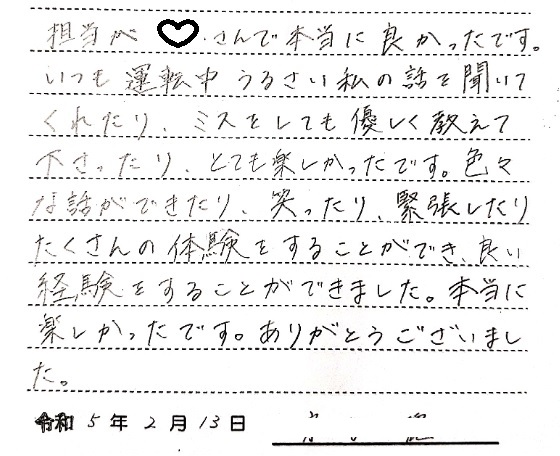 担当が ♡ さんで本当に良かったです。
いつも運転中うるさい私の話を聞いて
くれたり、ミスをしても優しく教えて
下さったり、とても楽しかったです。色々
な話ができたり、笑ったり、緊張したり
たくさんの体験をすることができ、良い
経験をすることができました。本当に
楽しかったです。ありがとうございまし
た。
令和 5 年 2 月 13 日